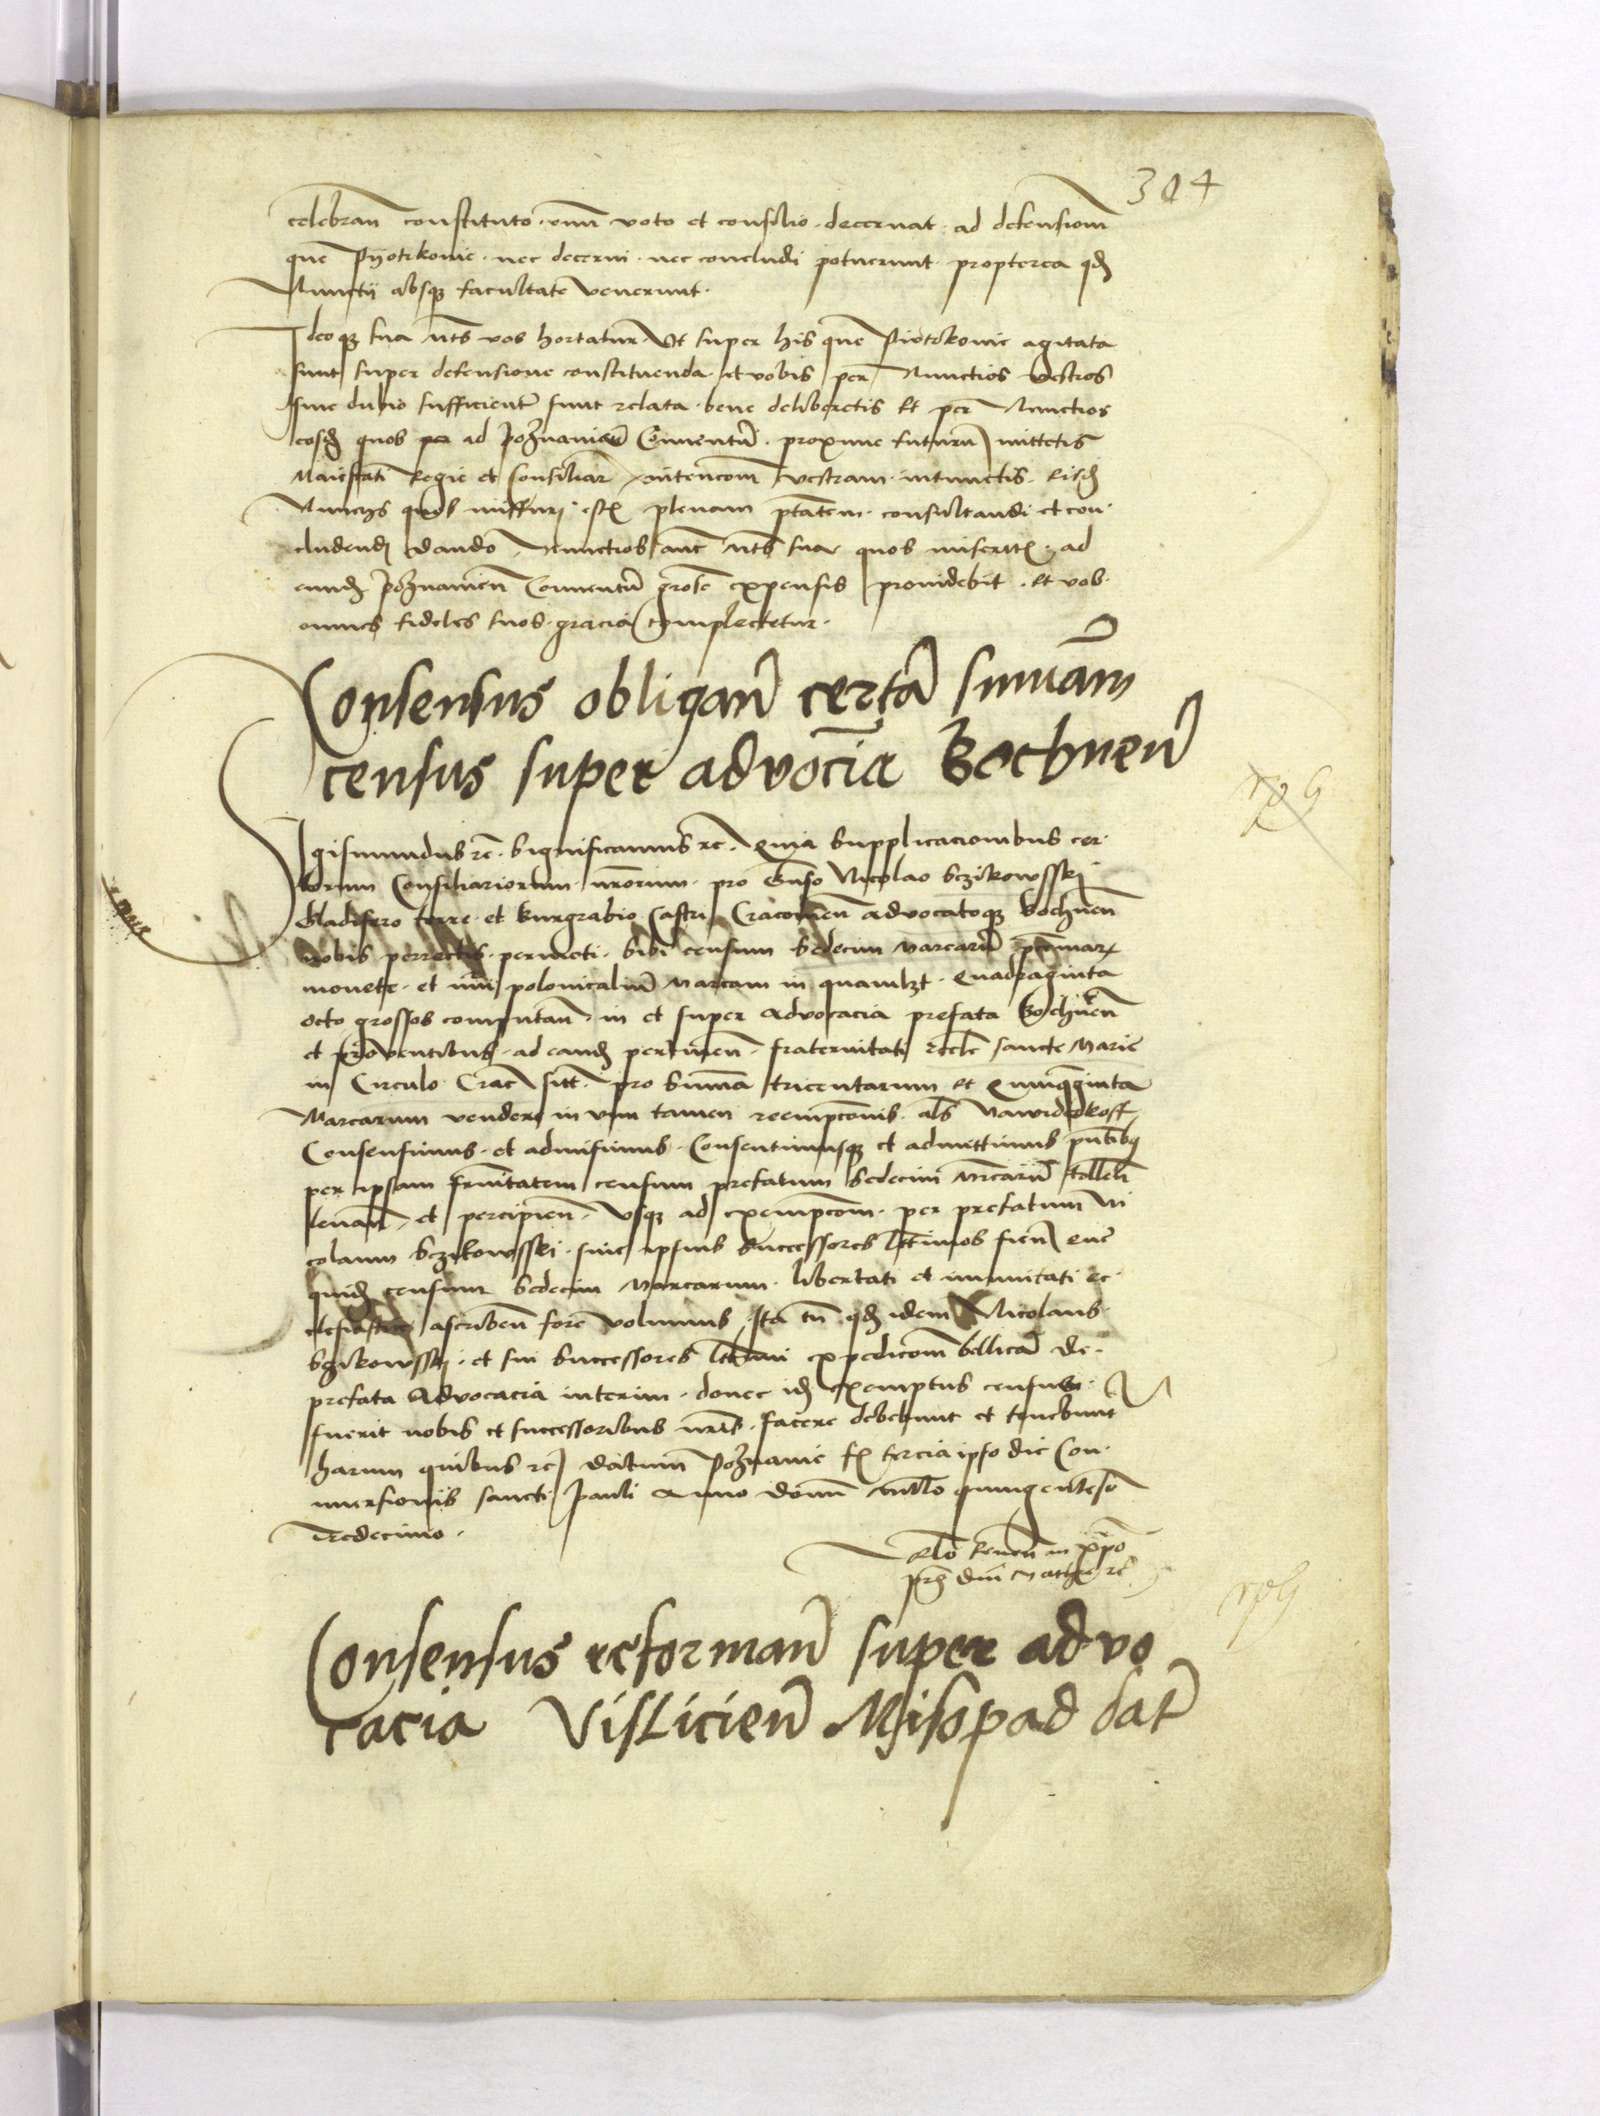 304
celebran̄ constituto · cum voto et consilio · decernat · ad defensionem̄
que Pyotrkovie · nec decerni · nec concludi potuerunt · propterea qđ
Nunctii absqz facultate venerunt ·
Ideoqz sua mts vos hortatur Ut super his que Piotrkovie agitata
sunt super defensione constituenda · et vobis per Nunctios vestros
sine dubio sufficienter sunt relata · bene deliberetis Et per Nunctios
eosđ quos ad Poznanien̄ Conventū · proxime futurū mittetis
Maiestati Regie et Consiliar intencōem vestram · intimetis · Eisđ
Nuncys quos missuri estis plenam ptātem · consultandi et con-
cludendi dando · Nunctios aut̄ mts sua quos miseritis · ad
eundē Poznanien̄ Conventū expensis providebit · Et vos
omnes fideles suos · gracia complectetur ·
Consensus obligan̄ certā summam
census super advocīa Bochnen̄
Sigismundus rc̄ · Significamus rc̄ · Quia Supplicacionibus cer-
torum Consiliariorum · nrōrum · pro Gnso Nicolao Sczikowsski
Gladifero terre · et burgrabio Castri Cracovien̄ advocatoqz Bochnen̄
nobis porrectis · permoti · Sibi censum Sedecim Marcarū
monete · et nūi polonicaliū Marcam in quamlzt · Quadraginta
octo grossos computan̄ · in et super Advocacia prefata Bochnen̄
et proventibus · ad eandē pertinen̄ · fraternitati eccle sancte Marie
in Circulo Crac̄ sitt̄ · pro Summa tricentarum et Quinquaginta
Marcarum vendere in vim tamen reempcōnis · als Nawiderkoff
Consensimus · et admisimus · Consentimusqz et admittimus pn̄tibq
per ipsam frn̄itatem censum prefatum Sedecim Mrcarū tollen̄
levan̄ · et percipien̄ · Usqz ad exempcōem · per prefatum Ni
colaum Sczikowsski · sive ipsius Successores ltt̄imos fien̄ Que
quidē censum Sedecim Marcarum · libertati et immunitati ec-
clesiastice ascriben̄ fore volumus · Ita tn̄ qđ idem Nicolaus ·
Sczikowsski · et sui Successores ltt̄imi expedicōem bellicā de-
prefata Advocacia interim · donec idē exemptus census ·
fuerit nobis et successoribus nr̄is · facere debebunt et tenebunt
harum quibus rc̄ Datum Poznanie fr̄ tercia ipso die Con-
versionis sancti Pauli Anno domini millō quingentesō
Tredecimo ·
Rlō Reven̄ in xpō
pris dni Mathie rc̄
Consensus reforman̄ super advo
cacia Visliciēn Misopad dat̄